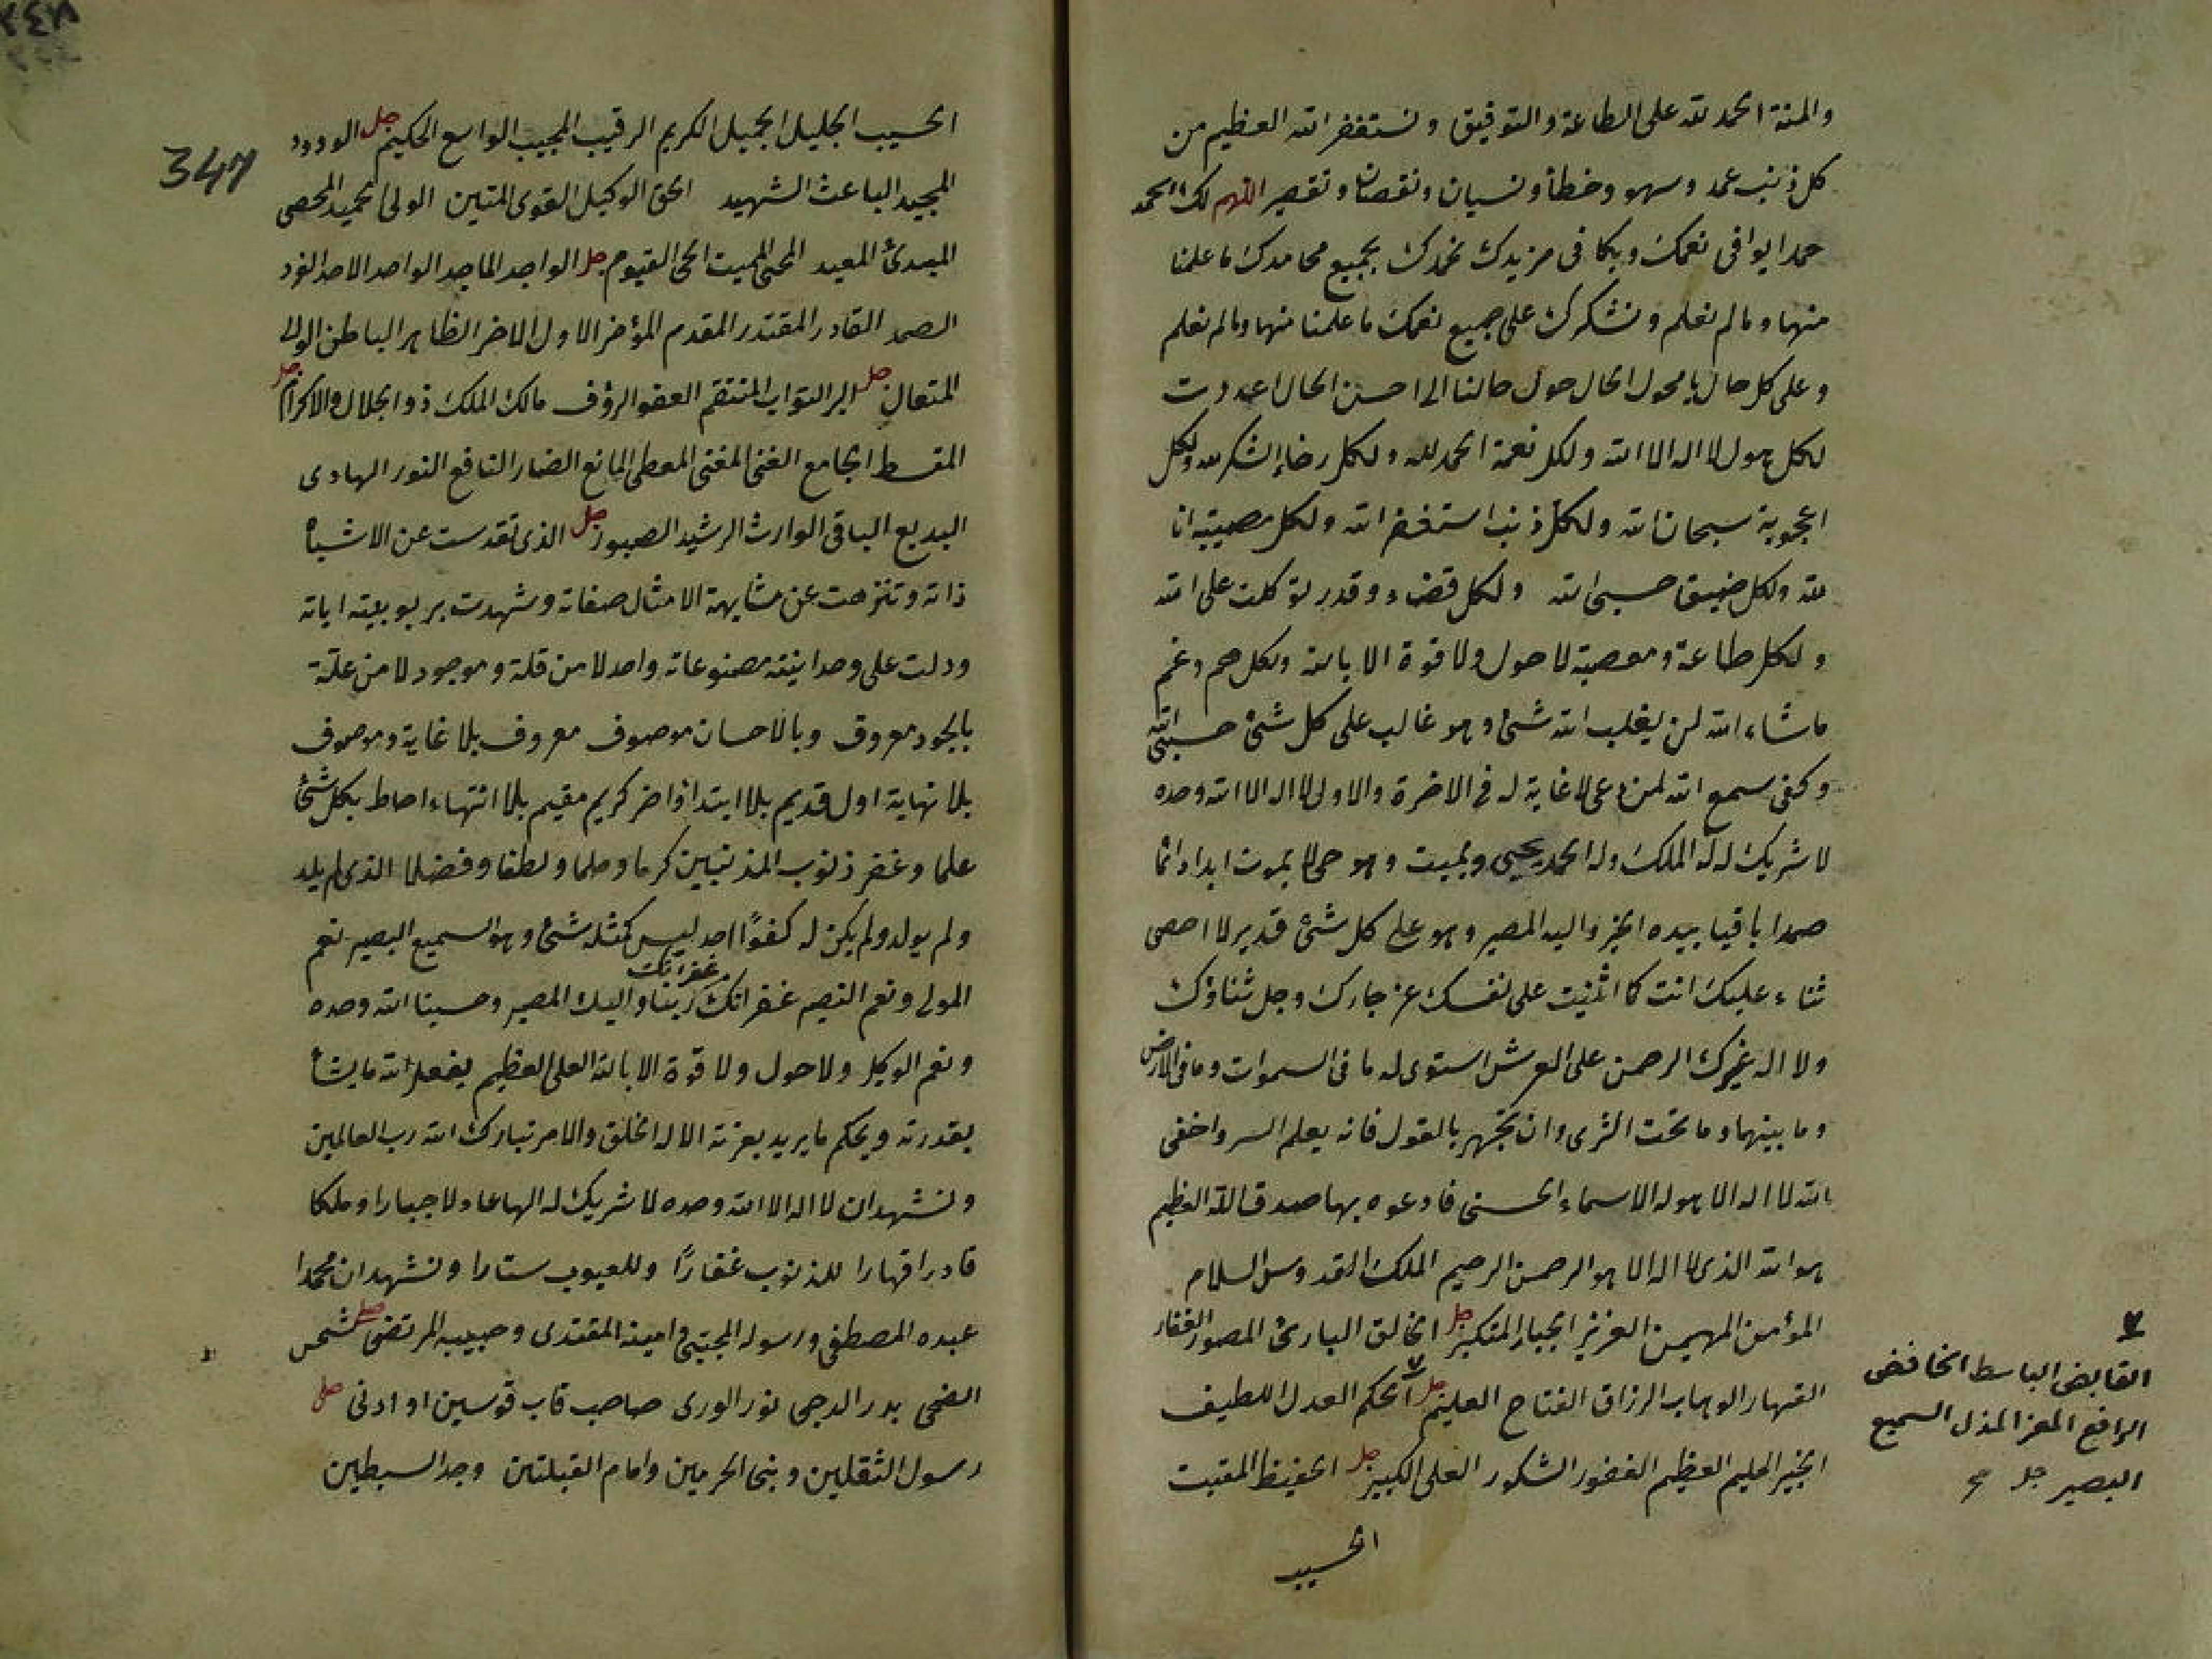 والمنة الحمد لله على الطاعة والتوفيق ونستغفر الله العظيم من
كل ذنب عمد وسهو وخطأ ونسيان ونقصان وتقصير اللهم لك الحمد
حمدا يوافى نعمك ويكافى مزيدك نحمدك بجميع محامدك ما علمنا
منها وما لم نعلم ونشكرك على جميع نعمك ما علمنا منها وما لم نعلم
وعلى كل حال يا محول الحال حول حالنا الى احسن الحال اعددت
لكل هول لا اله الا الله ولكل نعمة الحمد لله ولكل رخاء الشكر لله ولكل
اعجوبة سبحان الله ولكل ذنب استغفر الله ولكل مصيبة انا
لله ولكل ضيق حسبى الله ولكل قضاء وقدر توكلت على الله
ولكل طاعة ومعصية لا حول ولا قوة الا بالله ولكل هم وغم
ماشاء الله لن يغلب الله شئ وهو غالب على كل شئ حسبى الله
وكفى سمع الله لمن دعى لا غاية له فى الاخرة والاولى لا اله الا الله وحده
لا شريك له له الملك وله الحمد يحيى ويميت وهو حى لا يموت ابدا دائما
صمدا باقيا بيده الخير واليه المصير وهو على كل شئ قدير لا احصى
ثناء عليك انت كما اثنيت على نفسك عز جارك وجل ثناؤك
ولا اله غيرك الرحمن على العرش استوى له ما فى السموات وما فى الارض
وما بينهما وما تحت الثرى وان تجهر بالقول فانه يعلم السر واخفى
الله لا اله الا هو له الاسماء الحسنى فادعوه بها صدق الله العظيم
هو الله الذى لا اله الا هو الرحمن الرحيم الملك القدوس السلام
المؤمن المهيمن العزيز الجبار المتكبر جل الخالق البارئ المصور الغفار
القهار الوهاب الرزاق الفتاح العليم جل الحكم العدل اللطيف
الخبير الحليم العظيم الغفور الشكور العلى الكبير جل الحفيظ المقيت
الحسيب
القابض الباسط الخافض
الرافع المعز المذل السميع
البصير جل
347
الحسيب الجليل الجميل الكريم الرقيب المجيب الواسع الحكيم جل الودود
المجيد الباعث الشهيد الحق الوكيل القوى المتين الولى الحميد المحصى
المبدئ المعيد المحيى المميت الحى القيوم جل الواجد الماجد الواحد الاحد الفرد
الصمد القادر المقتدر المقدم المؤخر الاول الاخر الظاهر الباطن الوالى
المتعال جل البر التواب المنتقم العفو الرؤف مالك الملك ذو الجلال والاكرام جل
المقسط الجامع الغنى المغنى المعطى المانع الضار النافع النور الهادى
البديع الباقى الوارث الرشيد الصبور جل الذى تقدست عن الاشباه
ذاته وتنزهت عن مشابهة الامثال صفاته وشهدت بربوبيته اياته
ودلت على وحدانيته مصنوعاته واحد لا من قلة وموجود لا من علة
بالجود معروف وبالاحسان موصوف معروف بلا غاية وموصوف
بلا نهاية اول قديم بلا ابتدا واخر كريم مقيم بلا انتهاء احاط بكل شئ
علما وغفر ذنوب المذنبين كرما وحلما ولطفا وفضلا الذى لم يلد
ولم يولد ولم يكن له كفوًا احد ليس كمثله شئ وهو السميع البصير نعم
المولى ونعم النصير غفرانك غفرانك ربنا واليك المصير وحسبنا الله وحده
ونعم الوكيل ولا حول ولا قوة الا بالله العلى العظيم يفعل الله ما يشاء
بقدرته ويحكم ما يريد بعزته الا له الخلق والامر تبارك الله رب العالمين
ونشهد ان لا اله الا الله وحده لا شريك له الها عادلا جبارا وملكا
قادرا قهارا للذنوب غفارًا وللعيوب ستارا ونشهد ان محمدا
عبده المصطفى ورسوله المجتبى وامينه المقتدى وحبيبه المرتضى صلى شمس
الضحى بدر الدجى نور الورى صاحب قاب قوسين او ادنى صلى
رسول الثقلين ونبى الحرمين وامام القبلتين وجد السبطين